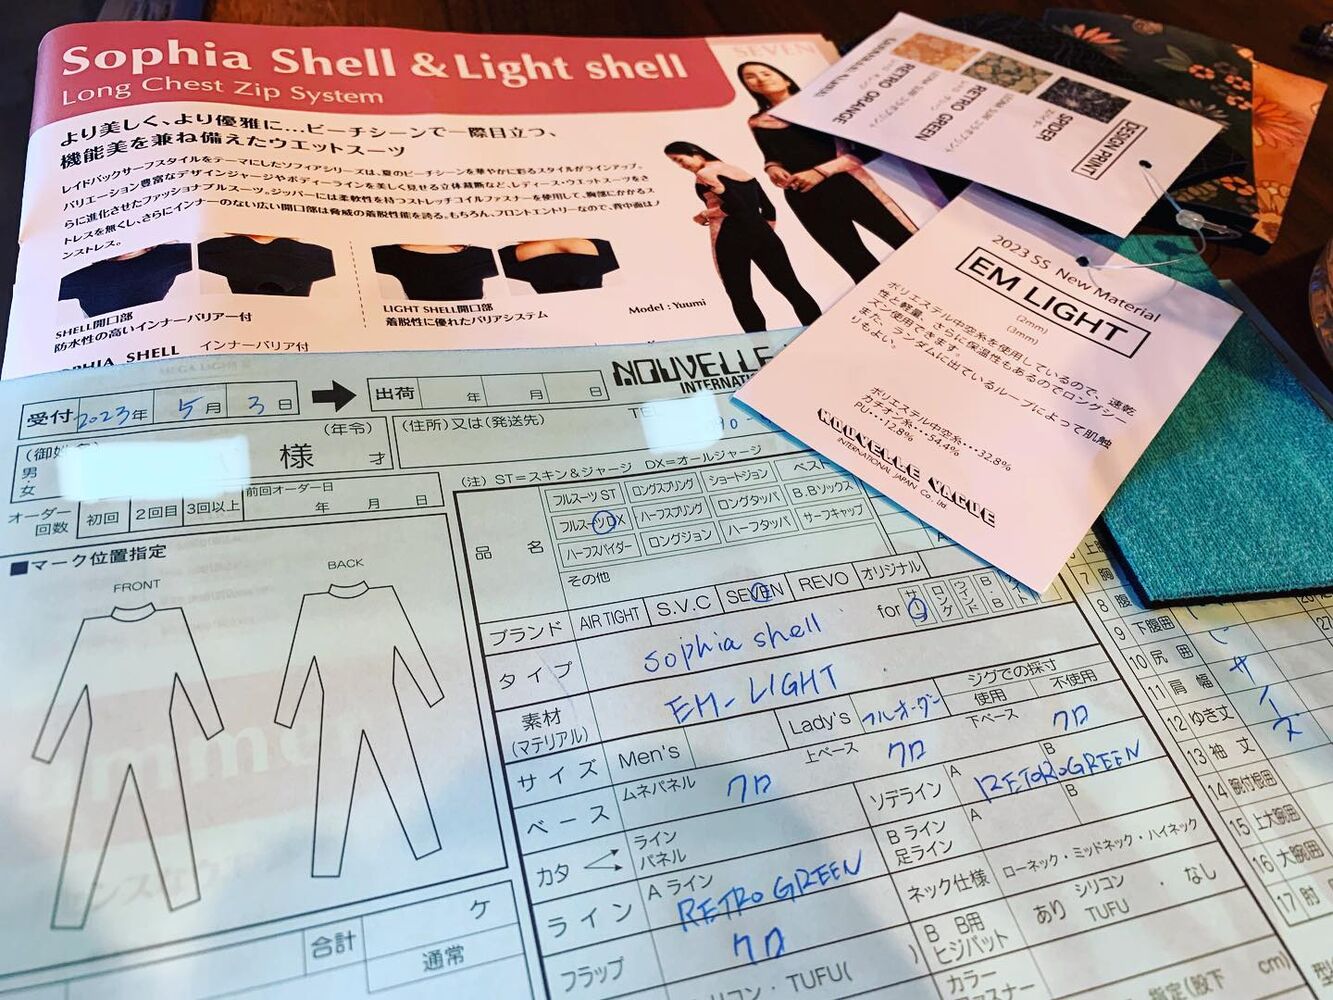 Sophia Shell & Light shell
Long Chest Zip System
SEVEN
より美しく、より優雅に…ビーチシーンで一際目立つ、
機能美を兼ね備えたウエットスーツ
レイドバックサーフスタイルをテーマにしたソフィアシリーズは、夏のビーチシーンを華やかに彩るスタイルがラインアップ。
バリエーション豊富なデザインジャージやボディーラインを美しく見せる立体裁断など、レディース・ウエットスーツをさ
らに進化させたファッショナブルスーツ。ジッパーには柔軟性を持つストレッチコイルファスナーを使用して、胸部にかかるス
トレスを無くし、さらにインナーのない広い開口部は脅威の着脱性能を誇る。もちろん、フロントエントリーなので、背中面はノ
ンストレス。
SHELL開口部
防水性の高いインナーバリアー付
LIGHT SHELL開口部
着脱性に優れたバリアシステム
Model : Yuumi
SOPHIA SHELL インナーバリア付
DESIGN PRINT
SPIDER
RETRO GREEN
RETRO ORANGE
2023 SS New Material
EM LIGHT
(2mm)
(3mm)
ポリエステル中空糸を使用しているので、速乾
性と軽量、さらに保温性もあるのでロングシー
ズン使用できます。
また、ランダムに出ているループによって肌触
りもよい。
ポリエステル中空糸…32.8%
カチオン糸…54.4%
PU…12.8%
NOUVELLE VAGUE
INTERNATIONAL JAPAN Co., Ltd.
NOUVELLE
INTERNATIO
受付 2023年 5月 3日
出荷 年 月 日
TEL
090-
(御姓名)
様
(年令)
才
男・女
(住所)又は(発送先)
オーダー回数 初回 2回目 3回以上 前回オーダー日 年 月 日
(注) ST=スキン&ジャージ DX=オールジャージ
■マーク位置指定
FRONT
BACK
品名
フルスーツ ST ロングスプリング ショートジョン ベスト
フルスーツ DX ハーフスプリング ロングタッパ B.Bソックス
ハーフスパイダー ロングジョン ハーフタッパ サーフキャップ
その他
ブランド AIR TIGHT S.V.C SEVEN REVO オリジナル
タイプ sophia shell for サーフ ロング ウインド B・B
素材(マテリアル) EM-LIGHT
サイズ Men's Lady's フルオーダー ジグでの採寸 使用 不使用
ベース ムネパネル クロ 上ベース クロ 下ベース クロ
カタ ライン パネル
ソデライン A RETORO GREEN B
ライン A ライン RETRO GREEN
B ライン 足ライン A B
フラップ クロ
ネック仕様 ローネック・ミッドネック・ハイネック
B B用 ヒジパット あり シリコン TUFU ・ なし
シリコン・TUFU( )
カラーファスナー
指定(股下 cm)
合計
ケ
通常
7 胸
8 腹
9 下腹囲
10 尻囲
11 肩幅
12 ゆき丈
13 袖丈
14 腕付根囲
15 上大腕囲
16 大腕囲
17 肘